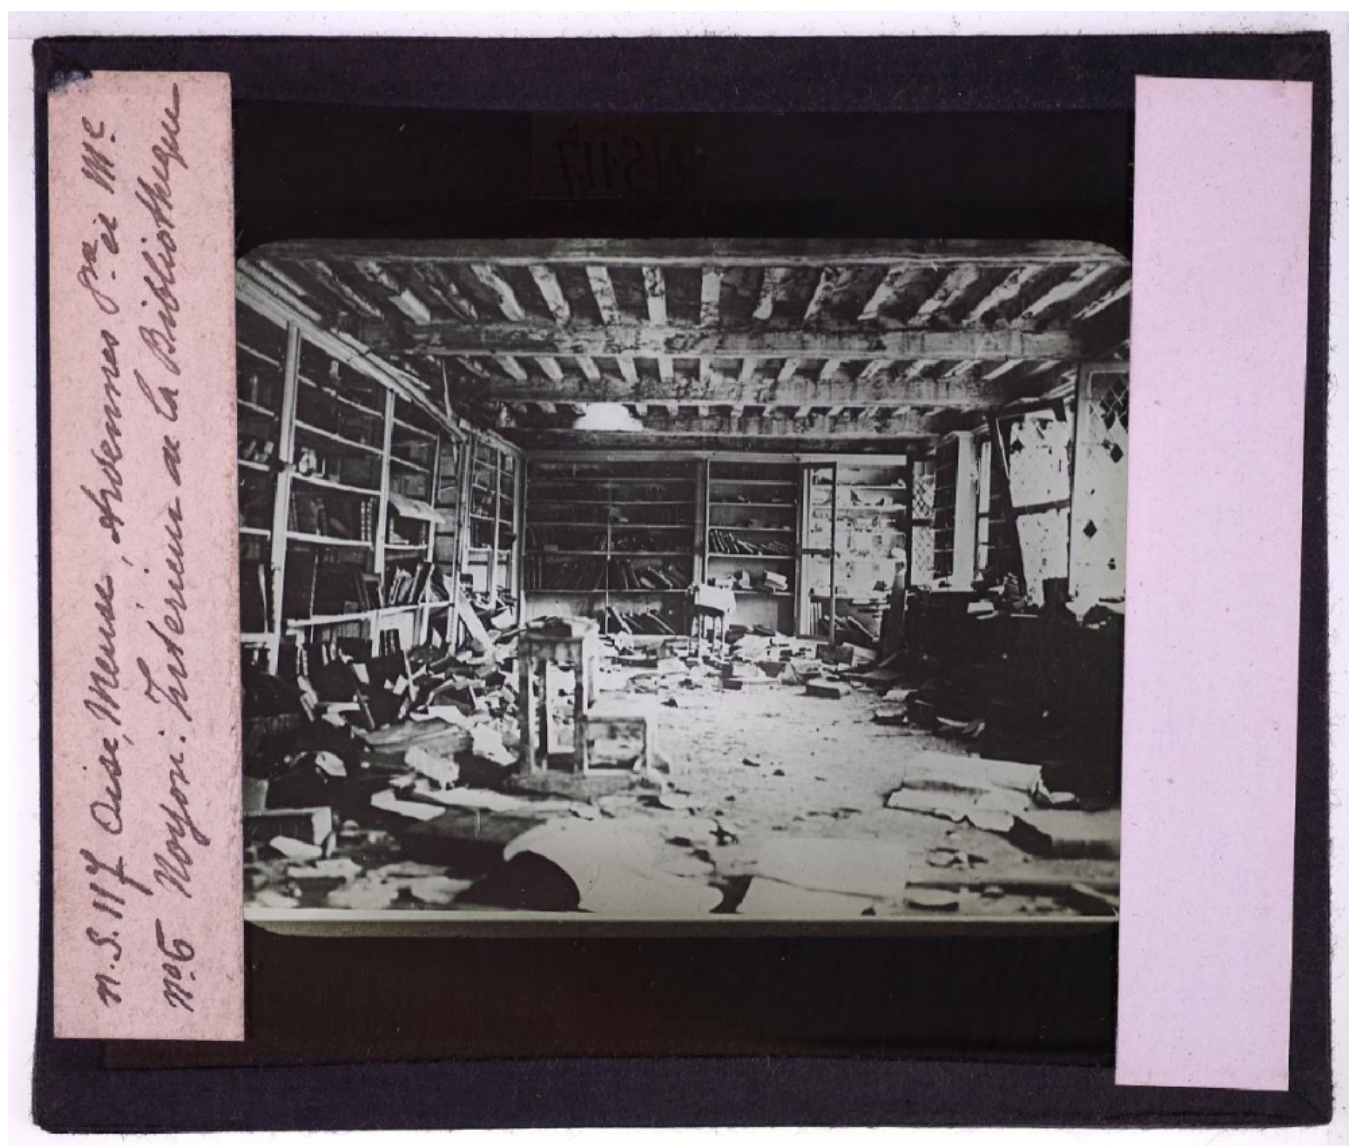 N.S. 117 Oise, Meuse, Ardennes P.ra et M.e
N.o 5 Noyon: Intérieur de la Bibliothèque
NS 117